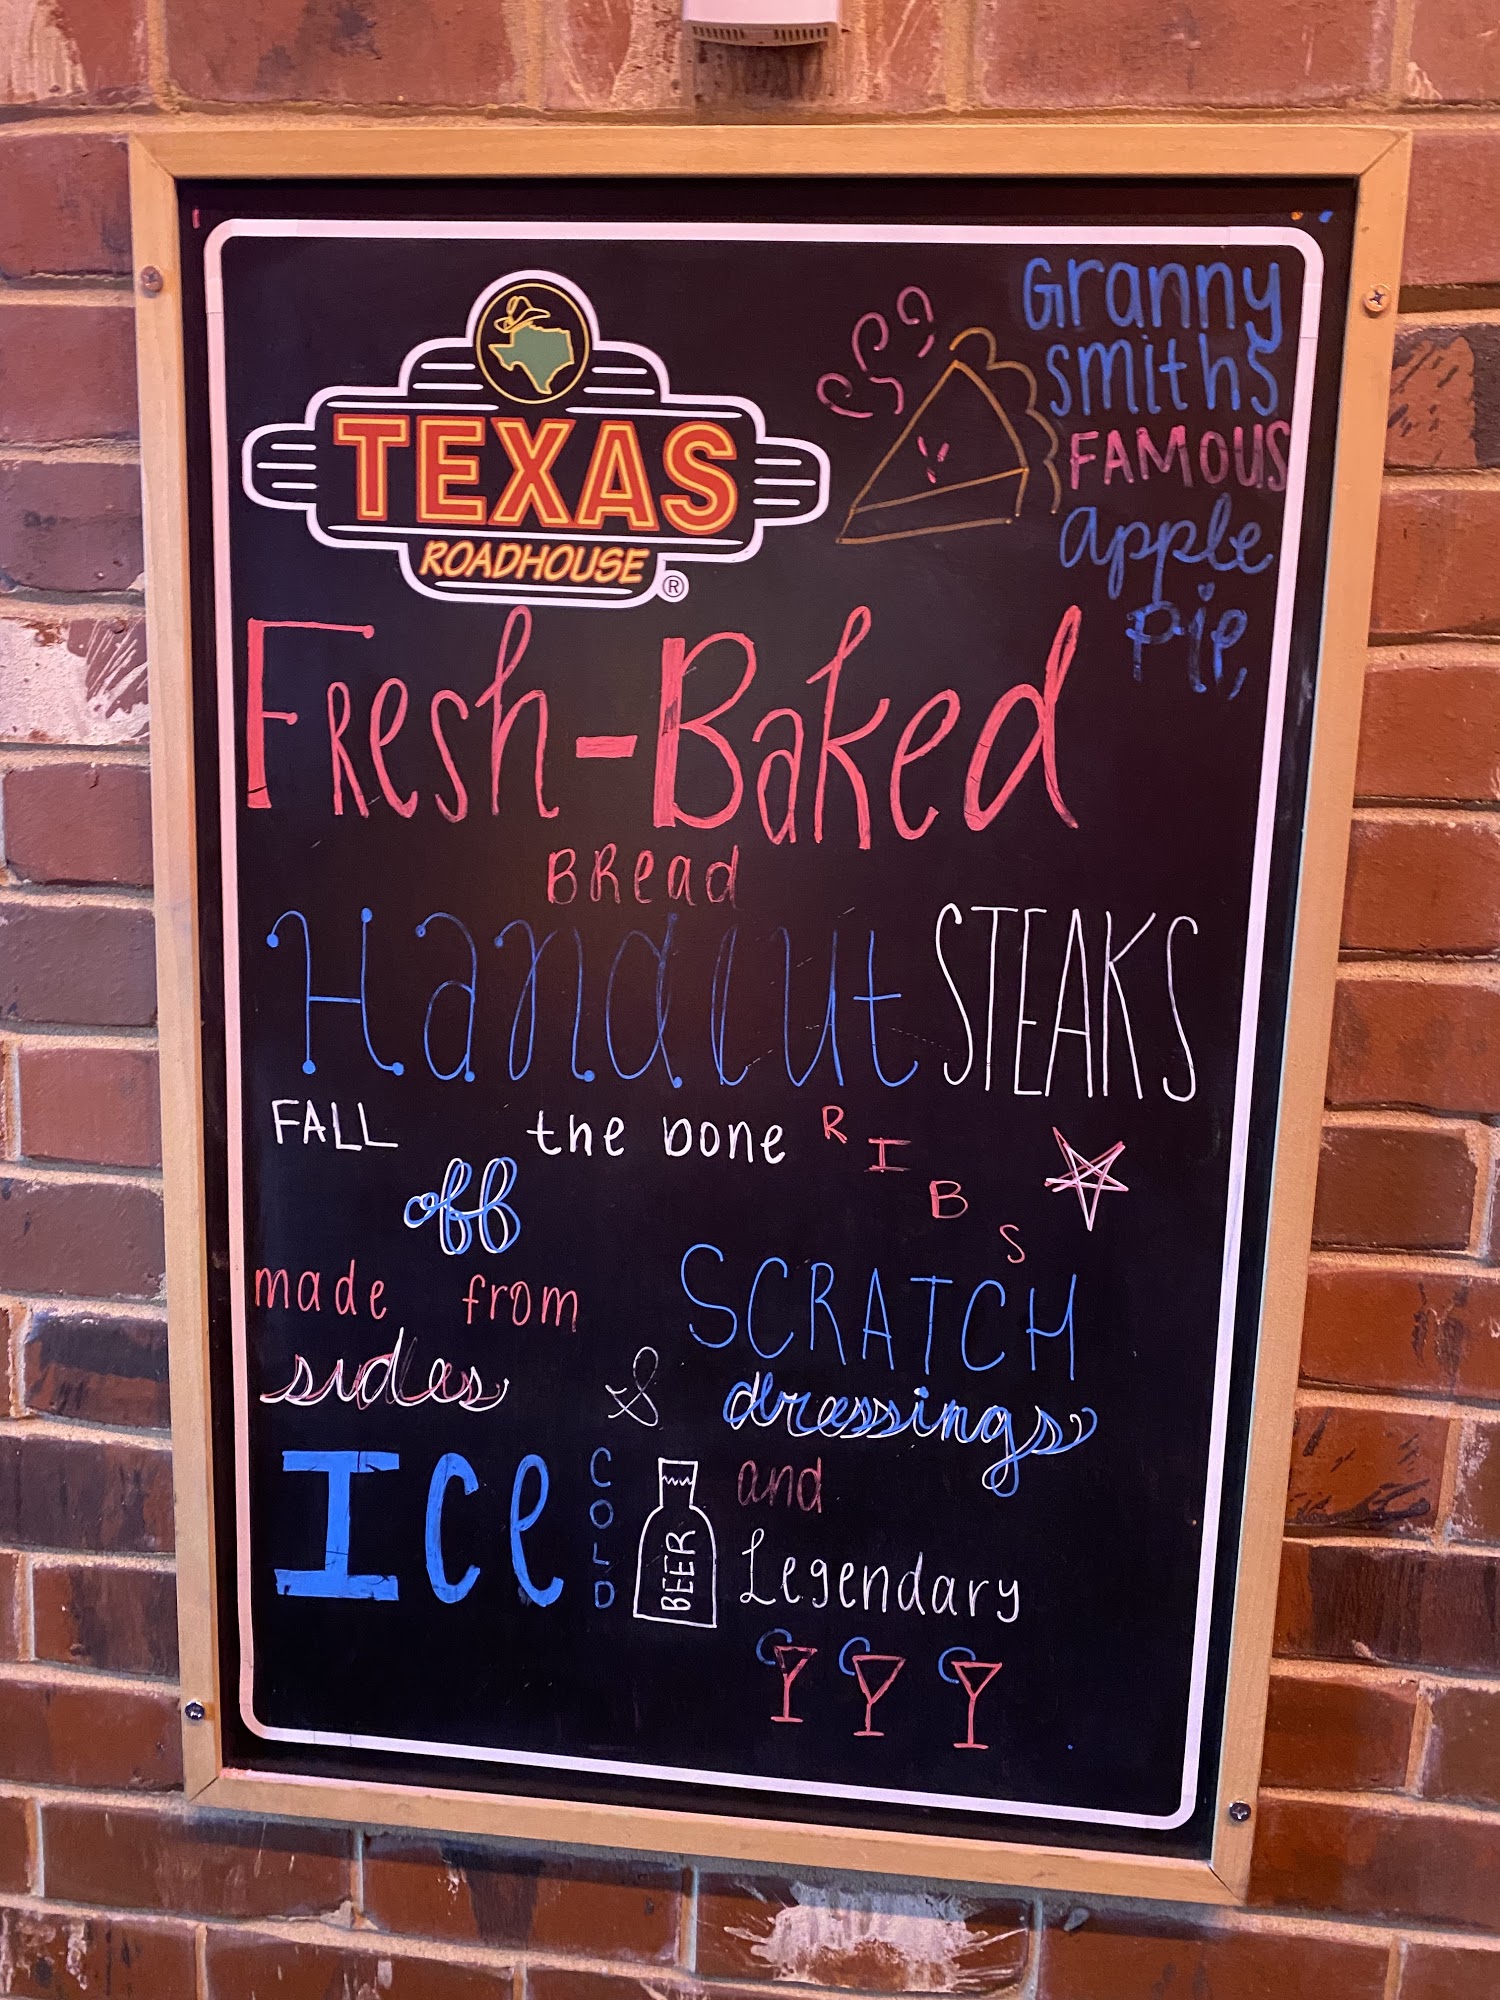 TEXAS
ROADHOUSE
®
Granny
smiths
FAMOUS
apple
pie,
Fresh-Baked
BRead
Handcut STEAKS
FALL off the bone RIBS
made from SCRATCH
sides & dressings
Ice COLD BEER and
Legendary